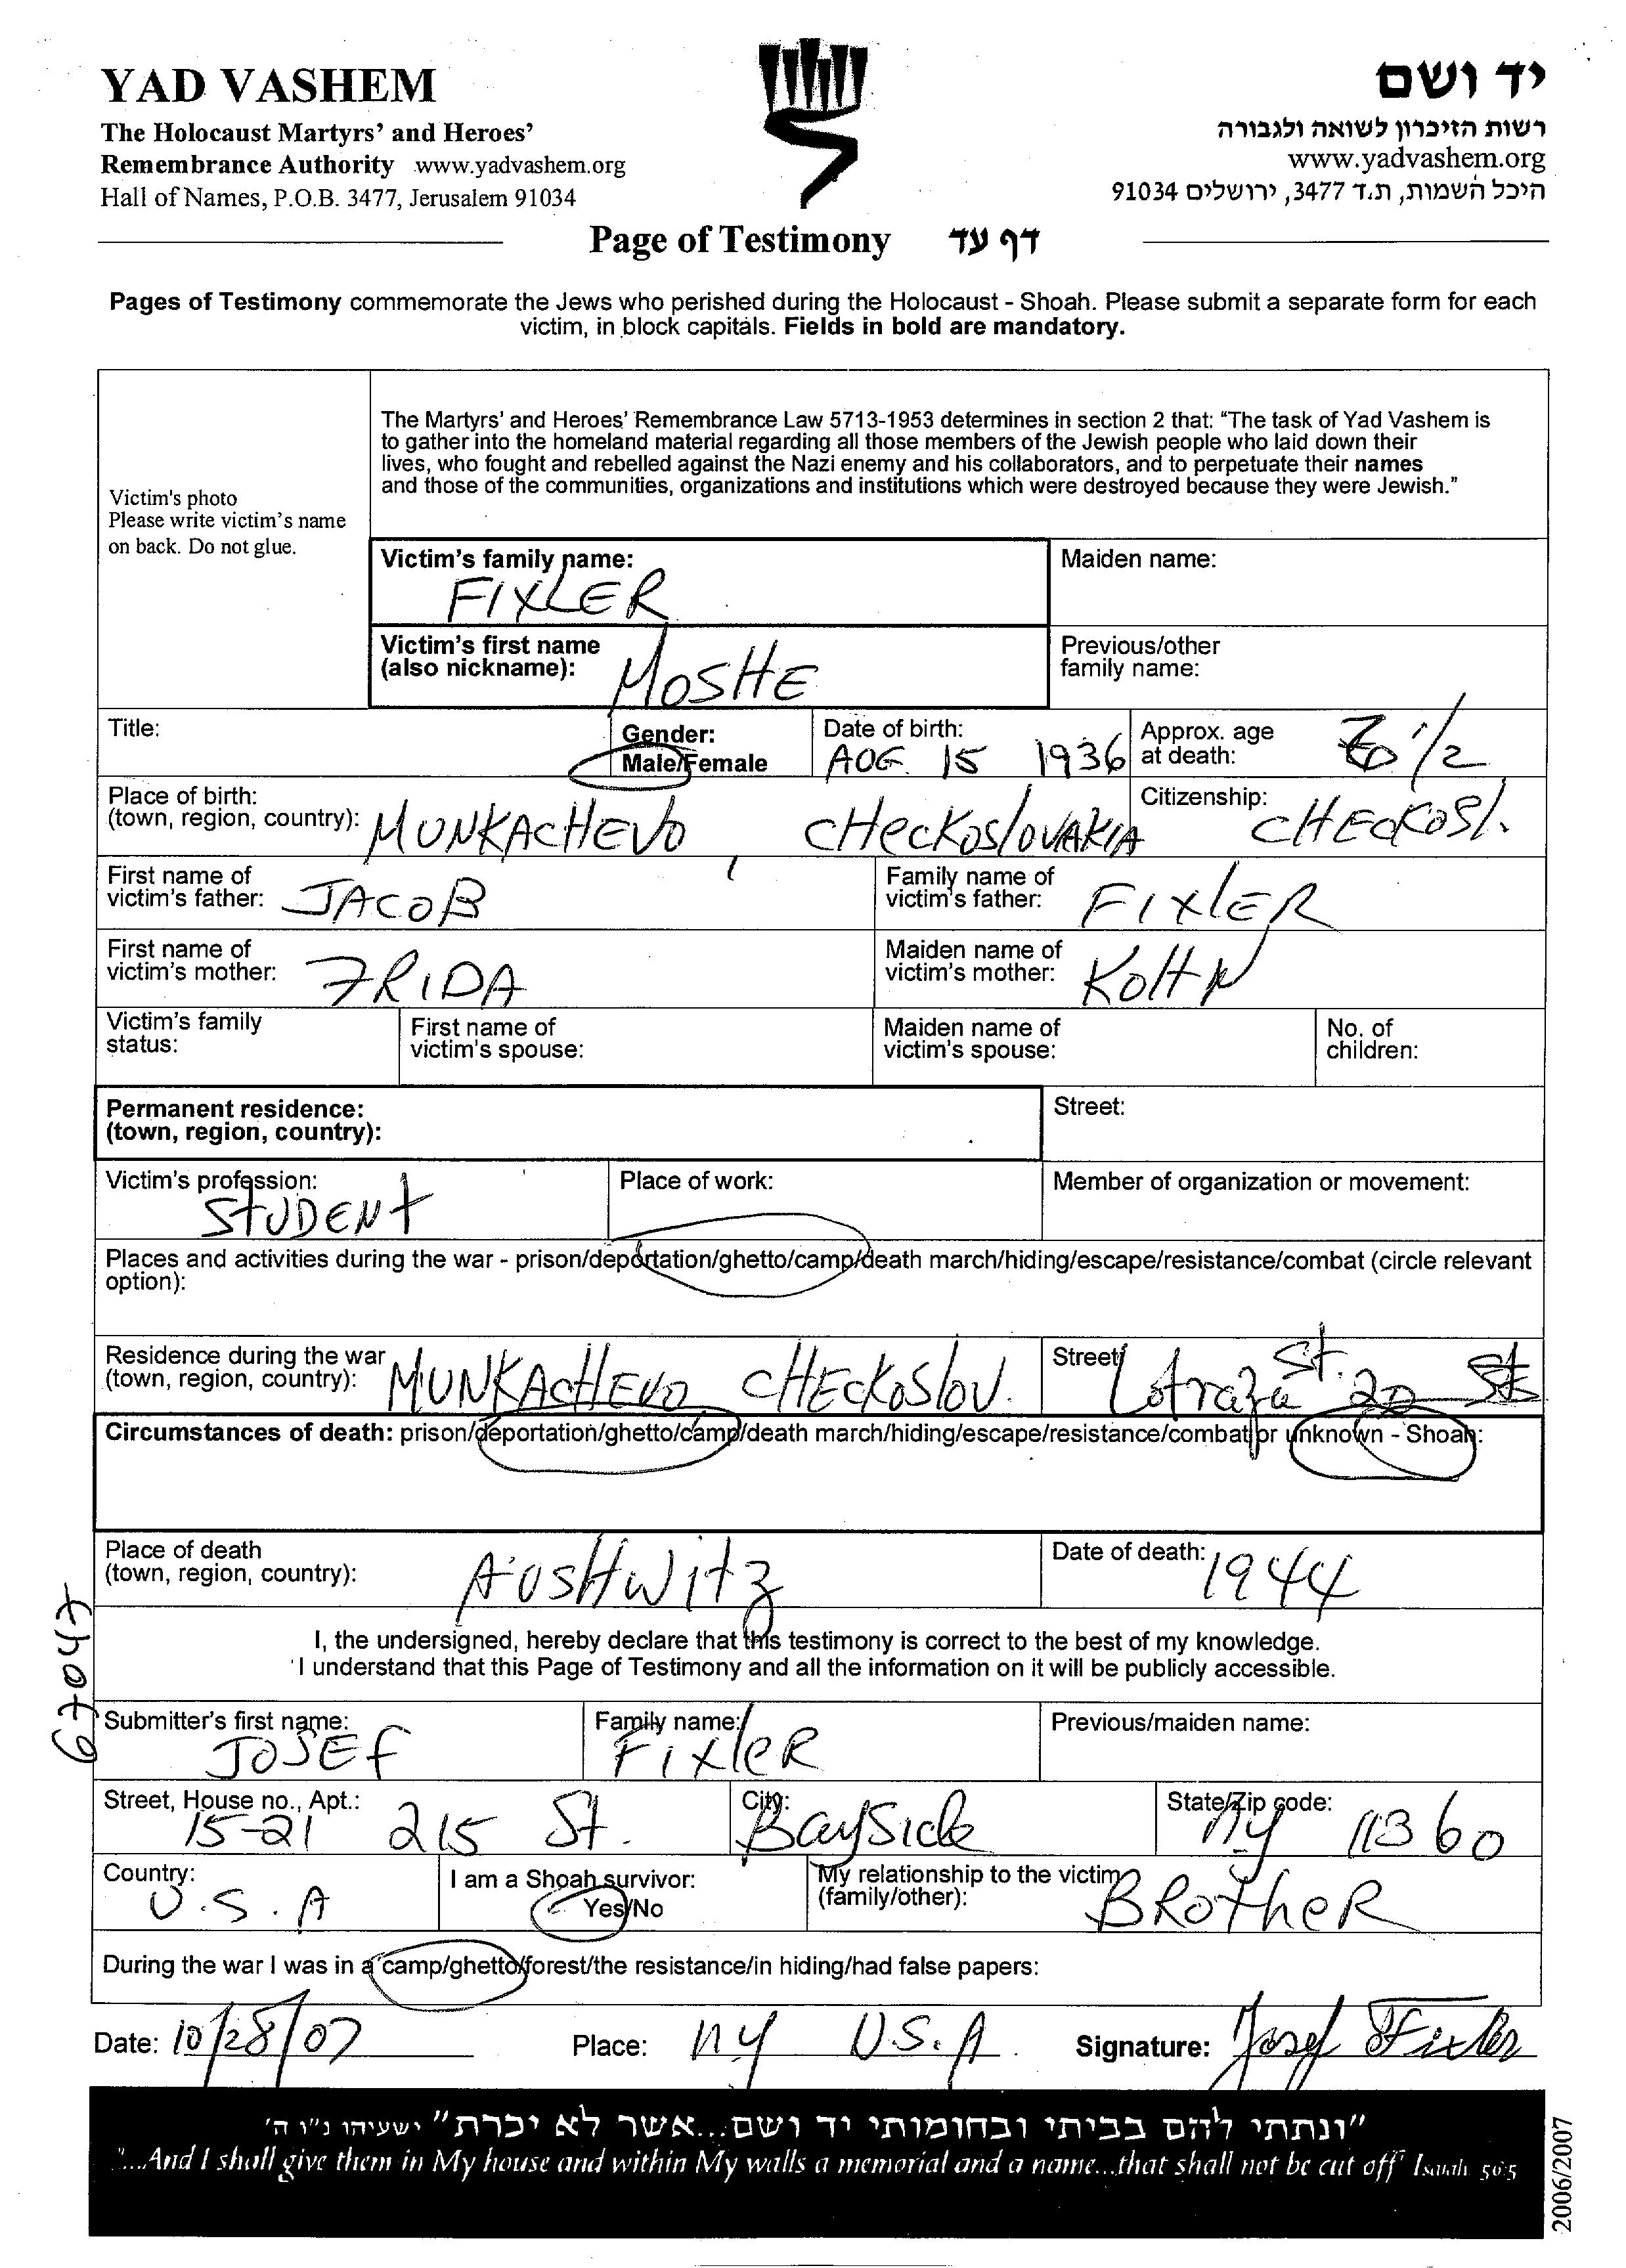 YAD VASHEM
יד ושם
The Holocaust Martyrs' and Heroes'
רשות הזיכרון לשואה ולגבורה
Remembrance Authority www.yadvashem.org
www.yadvashem.org
Hall of Names, P.O.B. 3477, Jerusalem 91034
היכל השמות, ת.ד 3477, ירושלים 91034
Page of Testimony דף עד
Pages of Testimony commemorate the Jews who perished during the Holocaust - Shoah. Please submit a separate form for each
victim, in block capitals. Fields in bold are mandatory.
Victim's photo
Please write victim's name
on back. Do not glue.
The Martyrs' and Heroes' Remembrance Law 5713-1953 determines in section 2 that: "The task of Yad Vashem is
to gather into the homeland material regarding all those members of the Jewish people who laid down their
lives, who fought and rebelled against the Nazi enemy and his collaborators, and to perpetuate their names
and those of the communities, organizations and institutions which were destroyed because they were Jewish."
Victim's family name:
FIXLER
Maiden name:
Victim's first name
(also nickname): MOSHE
Previous/other
family name:
Title:
Gender:
Male/Female
Date of birth:
AUG. 15 1936
Approx. age
at death: 1/2
Place of birth:
(town, region, country): MUNKACHEVO, CHECKOSLOVAKIA
Citizenship: CHECKOSl.
First name of
victim's father: JACOB
Family name of
victim's father: FIXlER
First name of
victim's mother: FRIDA
Maiden name of
victim's mother: KOHN
Victim's family
status:
First name of
victim's spouse:
Maiden name of
victim's spouse:
No. of
children:
Permanent residence:
(town, region, country):
Street:
Victim's profession:
STUDENT
Place of work:
Member of organization or movement:
Places and activities during the war - prison/deportation/ghetto/camp/death march/hiding/escape/resistance/combat (circle relevant
option):
Residence during the war
(town, region, country): MUNKACHEVO CHECKOSlOV.
Street: St. 20 St
Circumstances of death: prison/deportation/ghetto/camp/death march/hiding/escape/resistance/combat or unknown - Shoah:
Place of death
(town, region, country): AUSHWITZ
Date of death: 1944
I, the undersigned, hereby declare that this testimony is correct to the best of my knowledge.
I understand that this Page of Testimony and all the information on it will be publicly accessible.
67047
Submitter's first name:
JOSEF
Family name:
FIXleR
Previous/maiden name:
Street, House no., Apt.:
15-21 215 St.
City:
BaySide
State/Zip code:
NY 11360
Country:
U.S.A
I am a Shoah survivor:
Yes/No
My relationship to the victim
(family/other): BRotheR
During the war I was in a camp/ghetto/forest/the resistance/in hiding/had false papers:
Date: 10/28/07
Place: NY U.S.A
Signature: Josef Fixler
"ונתתי להם בביתי ובחומותי יד ושם...אשר לא יכרת" ישעיהו נ"ו ה'
"...And I shall give them in My house and within My walls a memorial and a name...that shall not be cut off" Isaiah 56:5
2006/2007